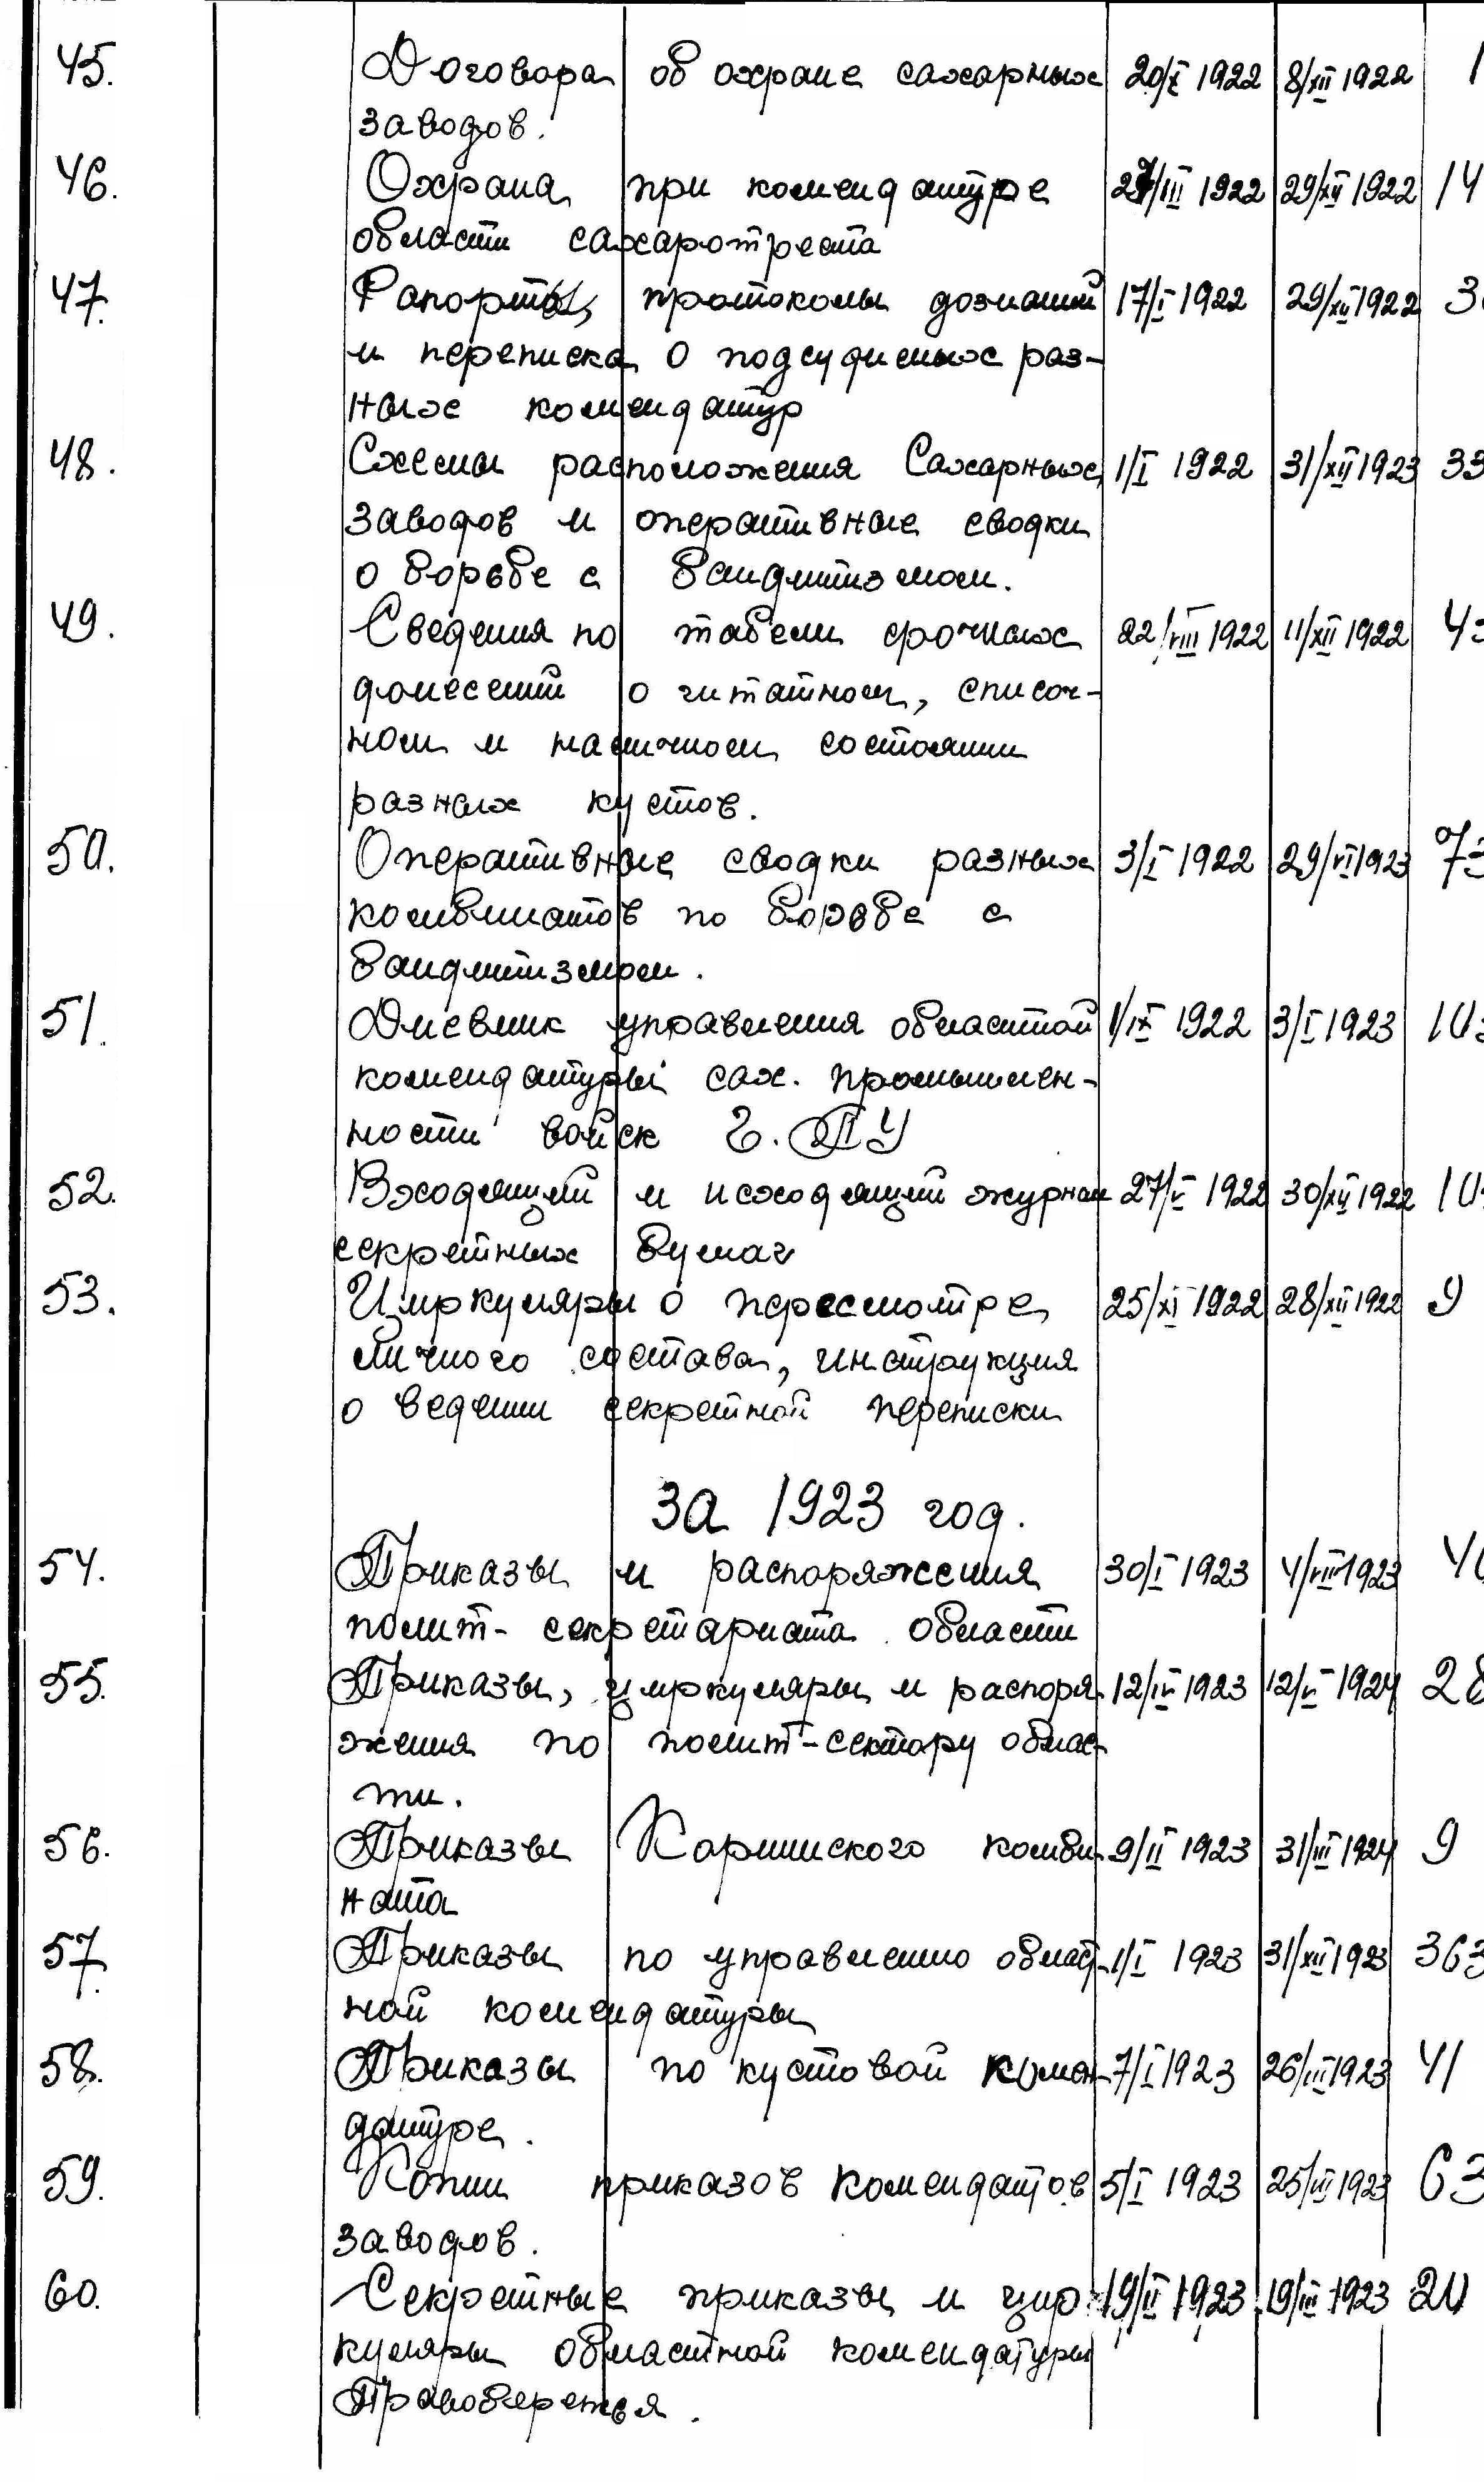 45. Договора об охране сахарных 20/X 1922 8/XII 1922 1
заводов.
46. Охрана при комендатуре 27/III 1922 29/XII 1922 14
области сахаротреста
47. Рапорты, протоколы дознаний 17/I 1922 29/XII 1922 3
и переписка о подсудимых раз-
ных комендатур
48. Схемы расположения Сахарных 1/I 1922 31/XII 1923 33
заводов и оперативные сводки
о борьбе с бандитизмом.
49. Сведения по табели срочных 22/VIII 1922 11/XII 1922 4
донесений о штатном, списоч-
ном и наличном состоянии
разных кустов.
50. Оперативные сводки разных 3/I 1922 29/VI 1923 73
комбинатов по борьбе с
бандитизмом.
51. Дневник управления областной 1/IX 1922 3/I 1923 10
комендатуры сах. промышлен-
ности войск Г.ПУ
52. Входящий и исходящий журнал 27/V 1922 30/XII 1922 10
секретных бумаг
53. Циркуляры о пересмотре 25/XI 1922 28/XII 1922 9
личного состава, инструкция
о ведении секретной переписки
За 1923 год.
54. Приказы и распоряжения 30/I 1923 4/VIII 1923 4
полит-секретариата области
55. Приказы, циркуляры и распоря 12/IV 1923 12/V 1924 28
жения по полит-сектору облас-
ти.
56. Приказы комби- 9/II 1923 31/III 1924 9
ната
57. Приказы по управлению област- 1/I 1923 31/XII 1923 363
ной комендатуры
58. Приказы по кустовой комен- 7/I 1923 26/III 1923 41
датуре.
59. Копии приказов комендатов 5/I 1923 1923 63
заводов.
60. Секретные приказы и цир- 19/II 1923 19/III 1923 20
куляры областной комендатуры
Правобережья.